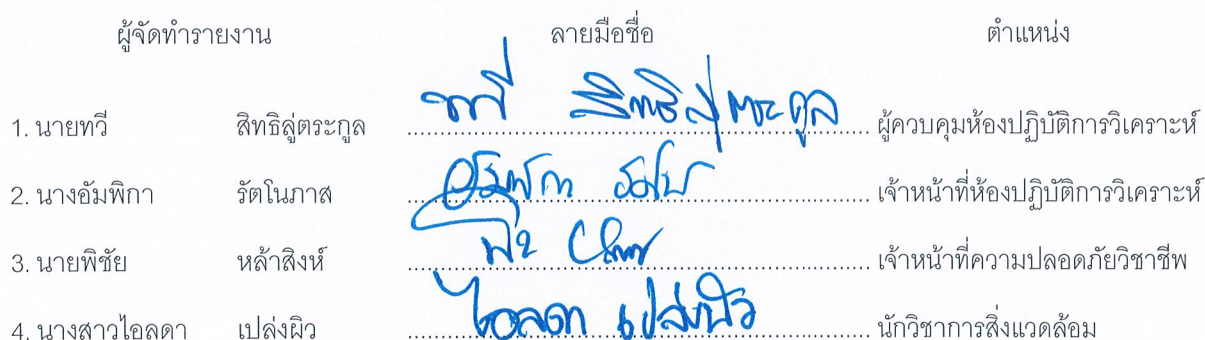 ผู้จัดทำรายงาน ลายมือชื่อ ตำแหน่ง
1. นายทวี สิทธิลู่ตระกูล ทวี สิทธิลู่ตระกูล ผู้ควบคุมห้องปฏิบัติการวิเคราะห์
2. นางอัมพิกา รัตโนภาส อัมพิกา เจ้าหน้าที่ห้องปฏิบัติการวิเคราะห์
3. นายพิชัย หล้าสิงห์ เจ้าหน้าที่ความปลอดภัยวิชาชีพ
4. นางสาวไอลดา เปล่งผิว ไอลดา เปล่งผิว นักวิชาการสิ่งแวดล้อม